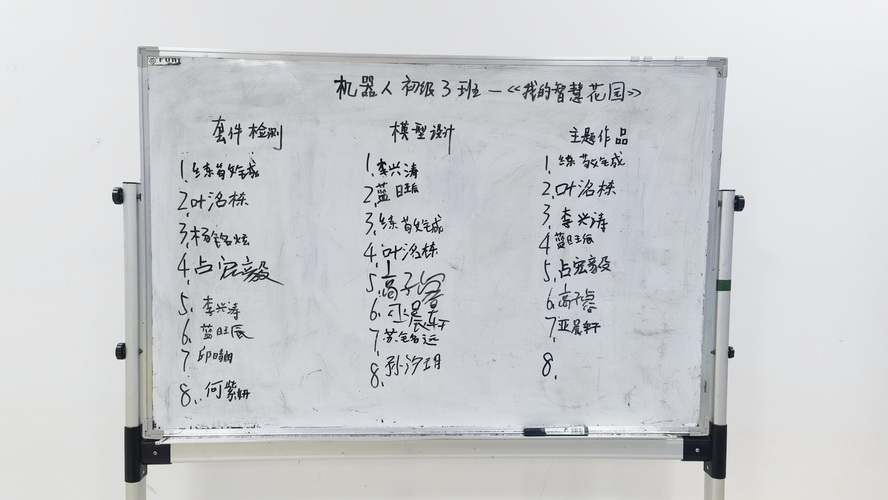 机器人初级3班—《我的智慧花园》
套件检测
1.练敬铖
2.叶洺栋
3.杨铭炫
4.占宏毅
5.李兴涛
6.蓝旺辰
7.邱
8.何紫妍
模型设计
1.李兴涛
2.蓝旺辰
3.练敬铖
4.叶洺栋
5.高子睿
6.晨轩
7.苏铭远
8.孙汐玥
主题作品
1.练敬铖
2.叶洺栋
3.李兴涛
4.蓝旺辰
5.占宏毅
6.高子睿
7.亚晨轩
8.